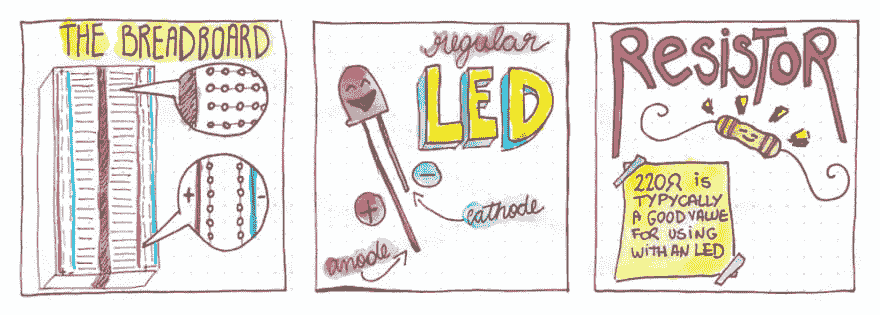 THE BREADBOARD
+ -
regular
LED
-
+
cathode
anode
ResisToR
220Ω is
TYPYCALLY
A GOOD VALUE
FOR USING
WITH AN LED